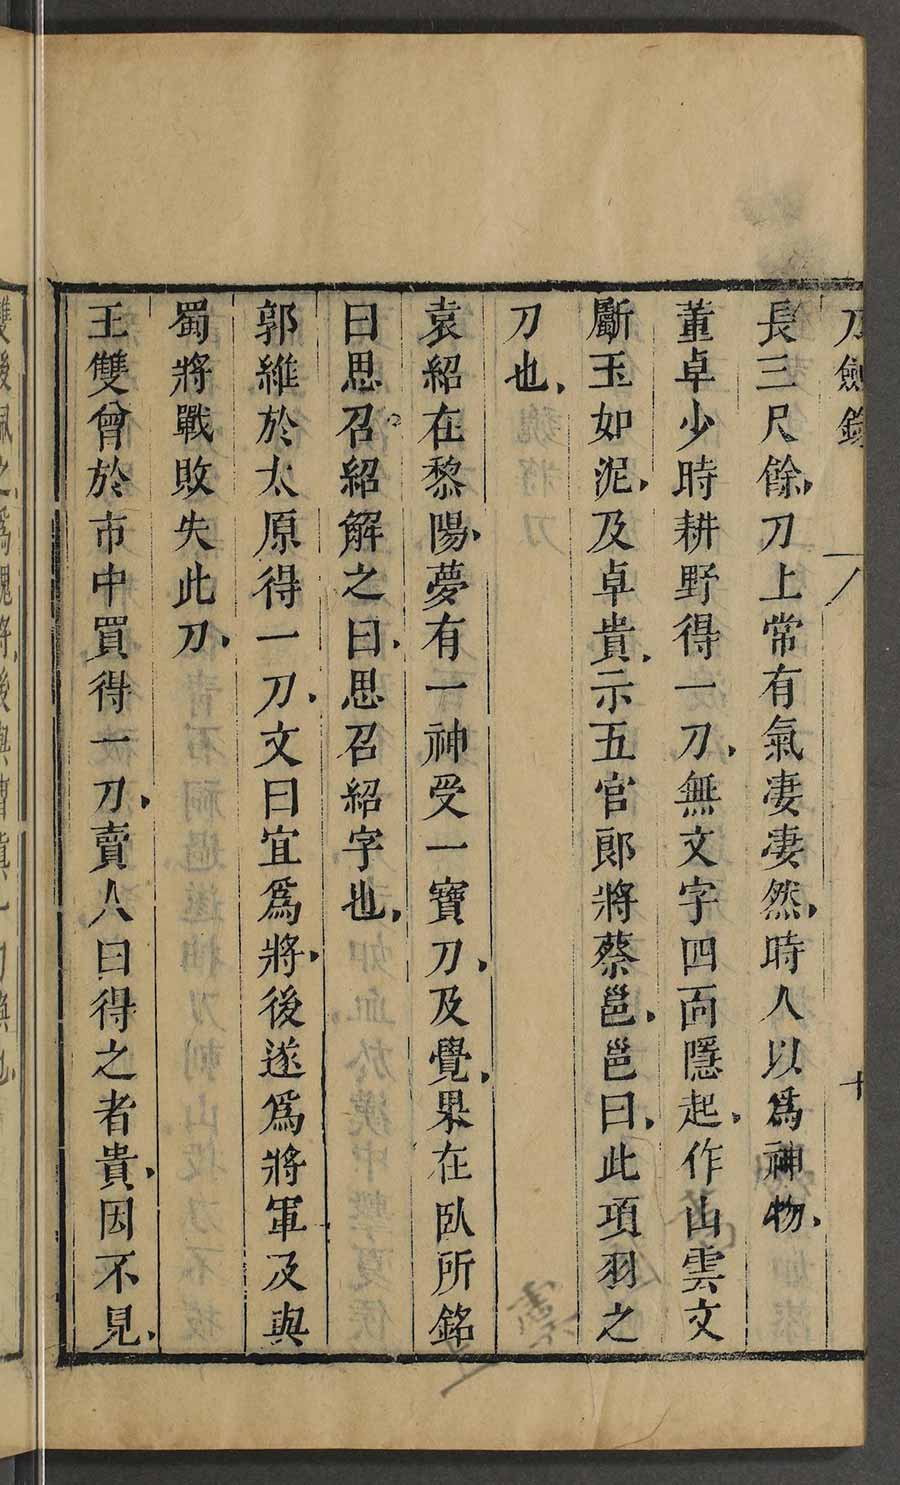 刀劍錄 八 十
長三尺餘刀上常有氣凄凄然時人以為神物
董卓少時耕野得一刀無文字四面隱起作山雲文
斸玉如泥及卓貴示五官郎將蔡邕邕曰此項羽之
刀也
袁紹在黎陽夢有一神受一寶刀及覺果在臥所銘
曰思召紹解之曰思召紹字也
郭維於太原得一刀文曰宜為將後遂為將軍及與
蜀將戰敗失此刀
王雙曾於市中買得一刀賣人曰得之者貴因不見